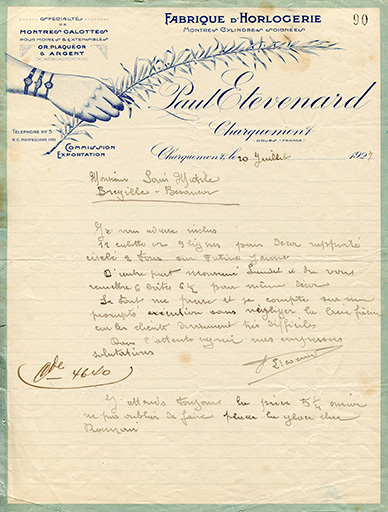 SPÉCIALITÉ
DE
MONTRES CALOTTES
POUR MOIRES & EXTENSIBLES
OR, PLAQUÉ OR
& ARGENT
FABRIQUE D'HORLOGERIE
MONTRES CYLINDRES SOIGNÉES
90
Paul Etevenard
Charquemont
DOUBS (FRANCE)
TÉLÉPHONE Nº 5
R.C. MONTBÉLIARD
COMMISSION
EXPORTATION
Charquemont, le 20 Juillet 1927
Monsieur Louis
Bregille - Besançon
Je vous adresse inclus
12 calotte or 9 lignes pour décor rapporté
ciselé 2 tons
D'autre part Monsieur de vous
remettre 6 boîtes 6 ½ pour même décor
Le tout me presse et je compte sur une
prompte exécution sans négliger
car les clients deviennent très difficiles
Dans l'attente agréez mes empressées
salutations
Cde 4640
J'attends toujours la pièce 5 ¼
ne pas oublier de faire placer la glace chez